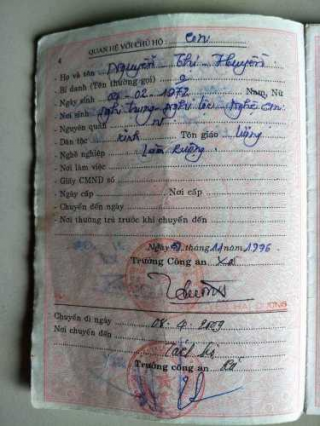 4
QUAN HỆ VỚI CHỦ HỘ: con
- Họ và tên Nguyễn Thị Huyền
- Bí danh (Tên thường gọi) 0
- Ngày sinh 02 1972 Nam, Nữ
- Nơi sinh Nghi Trung Nghi Lộc Nghệ An
- Nguyên quán
- Dân tộc Kinh Tôn giáo
- Nghề nghiệp Làm ruộng
- Nơi làm việc
- Giấy CMND số
- Ngày cấp Nơi cấp
- Chuyển đến ngày
- Nơi thường trú trước khi chuyển đến
Ngày tháng 11 năm 1996
Trưởng Công an Xã
Chuyển đi ngày 2009
Nơi chuyển đến
Trưởng công an